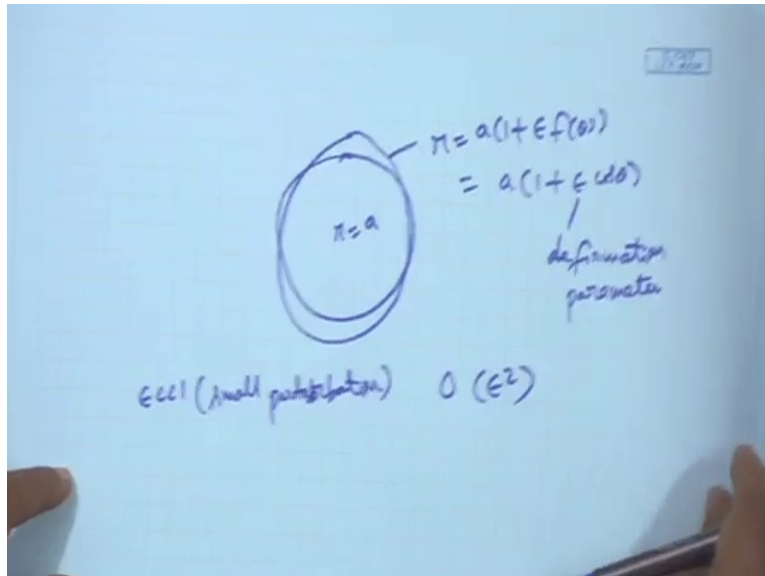 r = a(1 + ε f(θ))
= a(1 + ε cosθ)
r = a
deformation
parameter
ε<<1 (small perturbation) O(ε²)